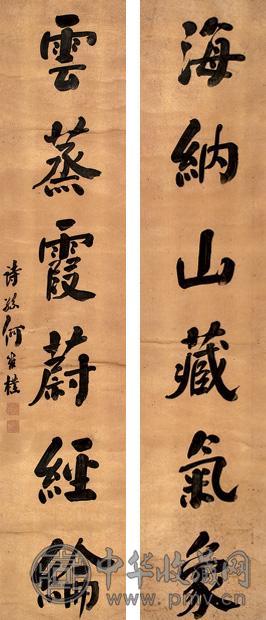 海納山藏氣象
雲蒸霞蔚經綸
詩孫何維樸
中华收藏网
www.pmv.cn